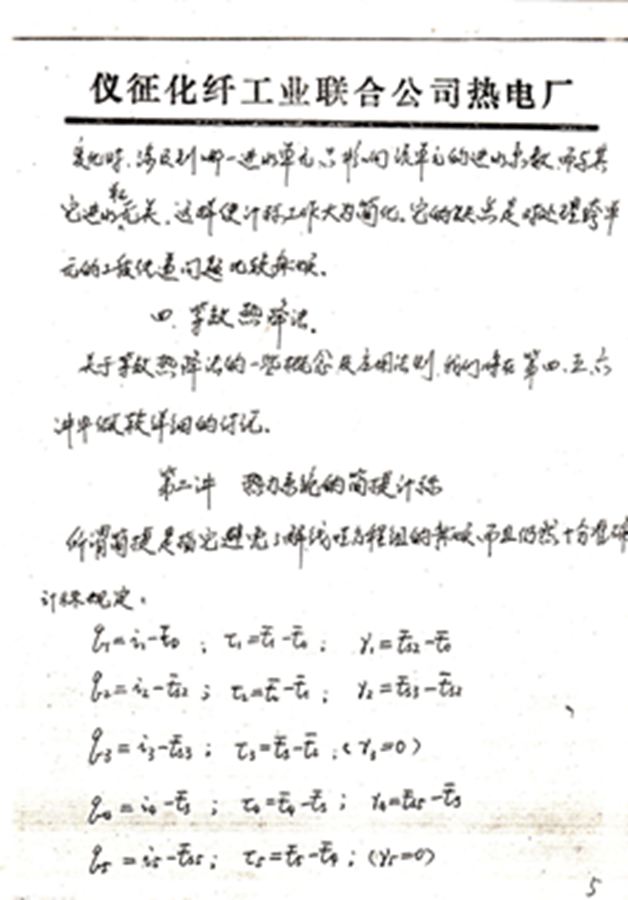 仪征化纤工业联合公司热电厂
变化时,涉及到哪一进水单元,只影响该单元的进水系数,而与其
它进水单元无关,这样使计算工作大为简化。它的缺点是对处理跨单
元的工段位置问题比较麻烦。
四、等效热降法。
关于等效热降法的一些概念及应用法则,我们将在第四、五、六
讲中做较详细的讨论。
第二讲 热力系统的简捷计算
所谓简捷是指它避免了解线性方程组的麻烦,而且仍然十分准确
计算规定。
q₁=i₁-t̄₀ ; τ₁=t̄₁-t̄₀ ; γ₁=t̄s₂-t̄₀
q₂=i₂-t̄s₂ ; τ₂=t̄₂-t̄₁ ; γ₂=t̄s₃-t̄s₂
q₃=i₃-t̄s₃ ; τ₃=t̄₃-t̄₂ ; (γ₃=0)
q₄=i₄-t̄₃ ; τ₄=t̄₄-t̄₃ ; γ₄=t̄s₅-t̄₃
q₅=i₅-t̄s₅ ; τ₅=t̄₅-t̄₄ ; (γ₅=0)
5